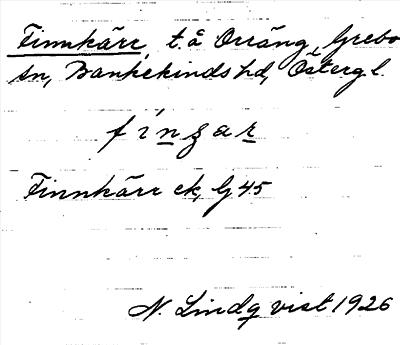 Finnkärr, t. å Orräng, Grebo
sn, Bankekinds hd, Östergl.
finzar
Finnkärr ek, G 45
N. Lindqvist 1926